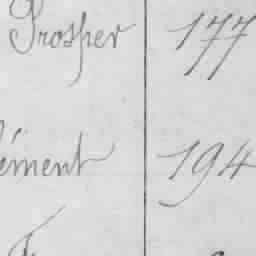 Prosper 177
ément 194